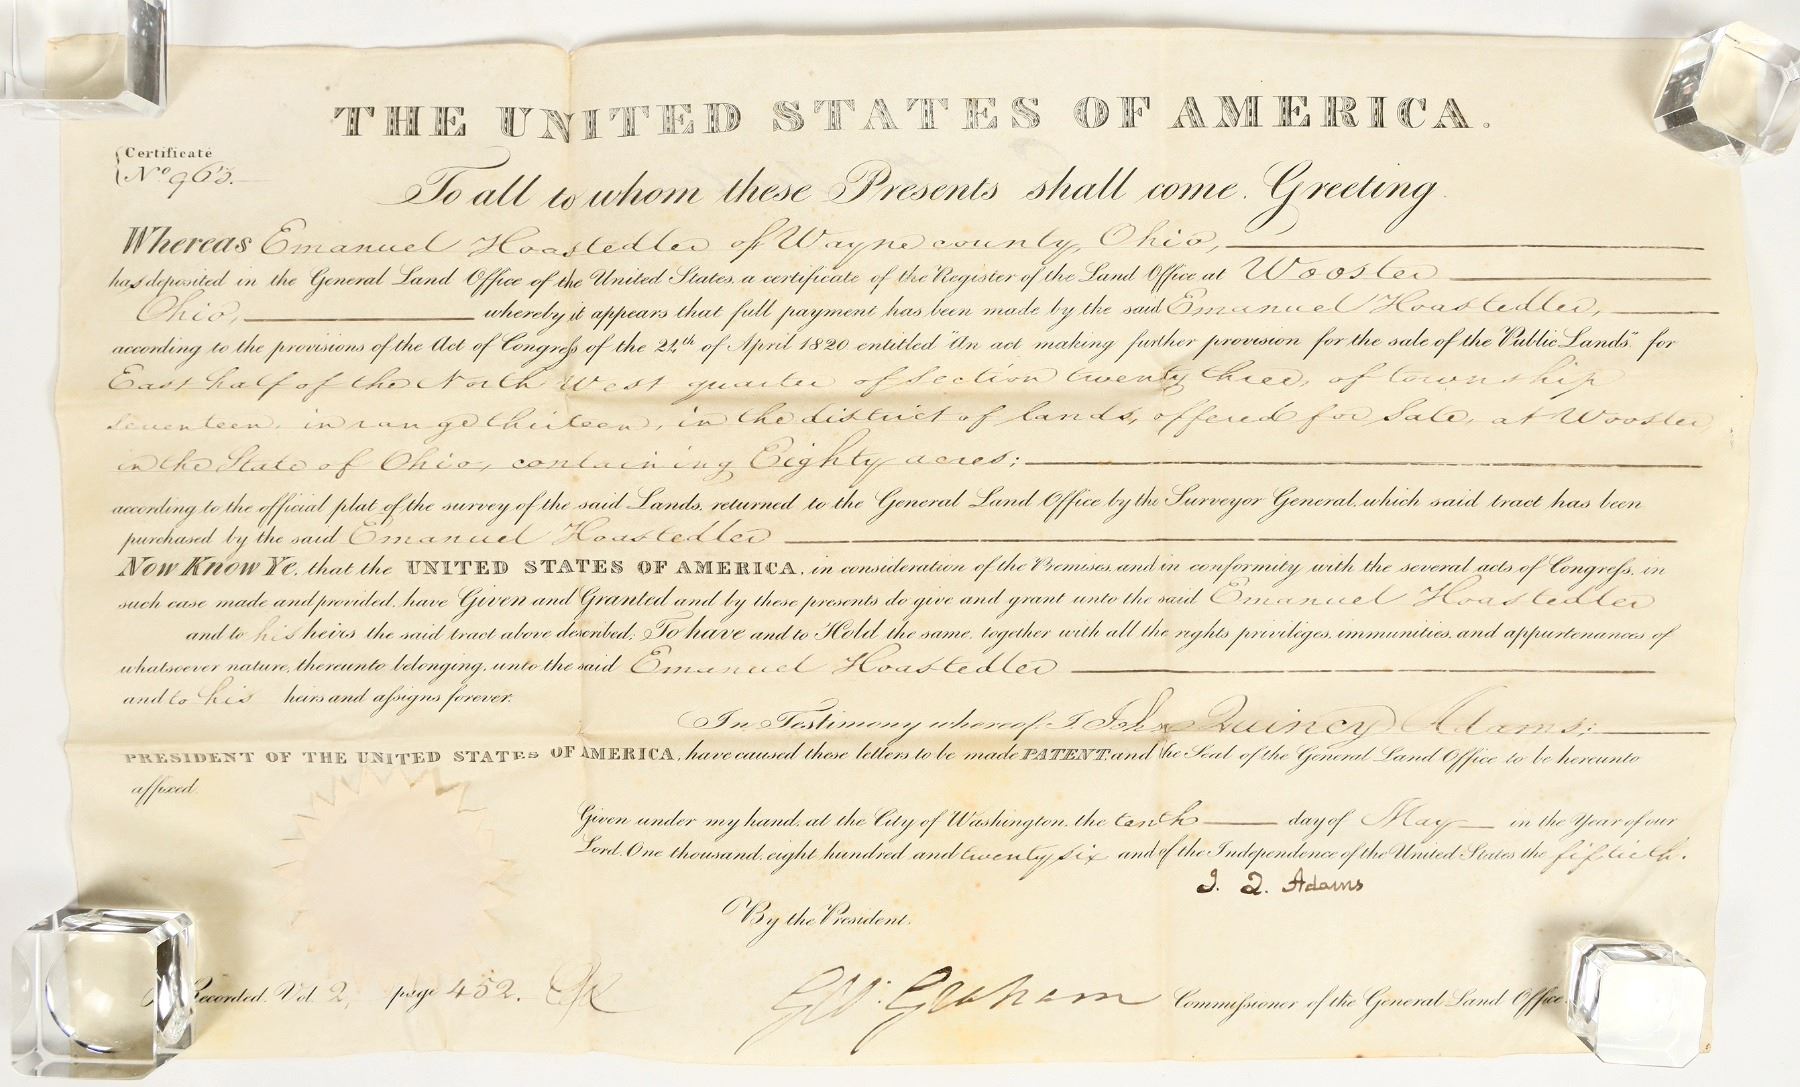 THE UNITED STATES OF AMERICA.
Certificate
No 963.
To all to whom these Presents shall come. Greeting.
Whereas Emanuel Hoastedler of Wayne county, Ohio,
has deposited in the General Land Office of the United States, a certificate of the Register of the Land Office at Wooster
Ohio, whereby it appears that full payment has been made by the said Emanuel Hoastedler,
according to the provisions of the Act of Congress of the 24th of April 1820 entitled "An act making further provision for the sale of the Public Lands," for
East half of the North West quarter of section twenty three, of township
seventeen, in range thirteen, in the district of lands, offered for Sale, at Wooster,
in the State of Ohio, containing Eighty acres;
according to the official plat of the survey of the said Lands, returned to the General Land Office by the Surveyor General, which said tract has been
purchased by the said Emanuel Hoastedler
Now Know Ye, that the UNITED STATES OF AMERICA, in consideration of the Premises, and in conformity with the several acts of Congress, in
such case made and provided, have Given and Granted and by these presents do give and grant unto the said Emanuel Hoastedler
and to his heirs the said tract above described; To have and to Hold the same, together with all the rights privileges, immunities, and appurtenances of
whatsoever nature, thereunto belonging, unto the said Emanuel Hoastedler
and to his heirs and assigns forever.
In Testimony whereof, I John Quincy Adams;
PRESIDENT OF THE UNITED STATES OF AMERICA, have caused these letters to be made PATENT, and the Seal of the General Land Office to be hereunto
affixed.
Given under my hand, at the City of Washington, the tenth day of May in the Year of our
Lord, One thousand eight hundred and twenty six and of the Independence of the United States the fiftieth.
J. Q. Adams
By the President.
Recorded Vol. 2, page 452.
GW. Graham Commissioner of the General Land Office